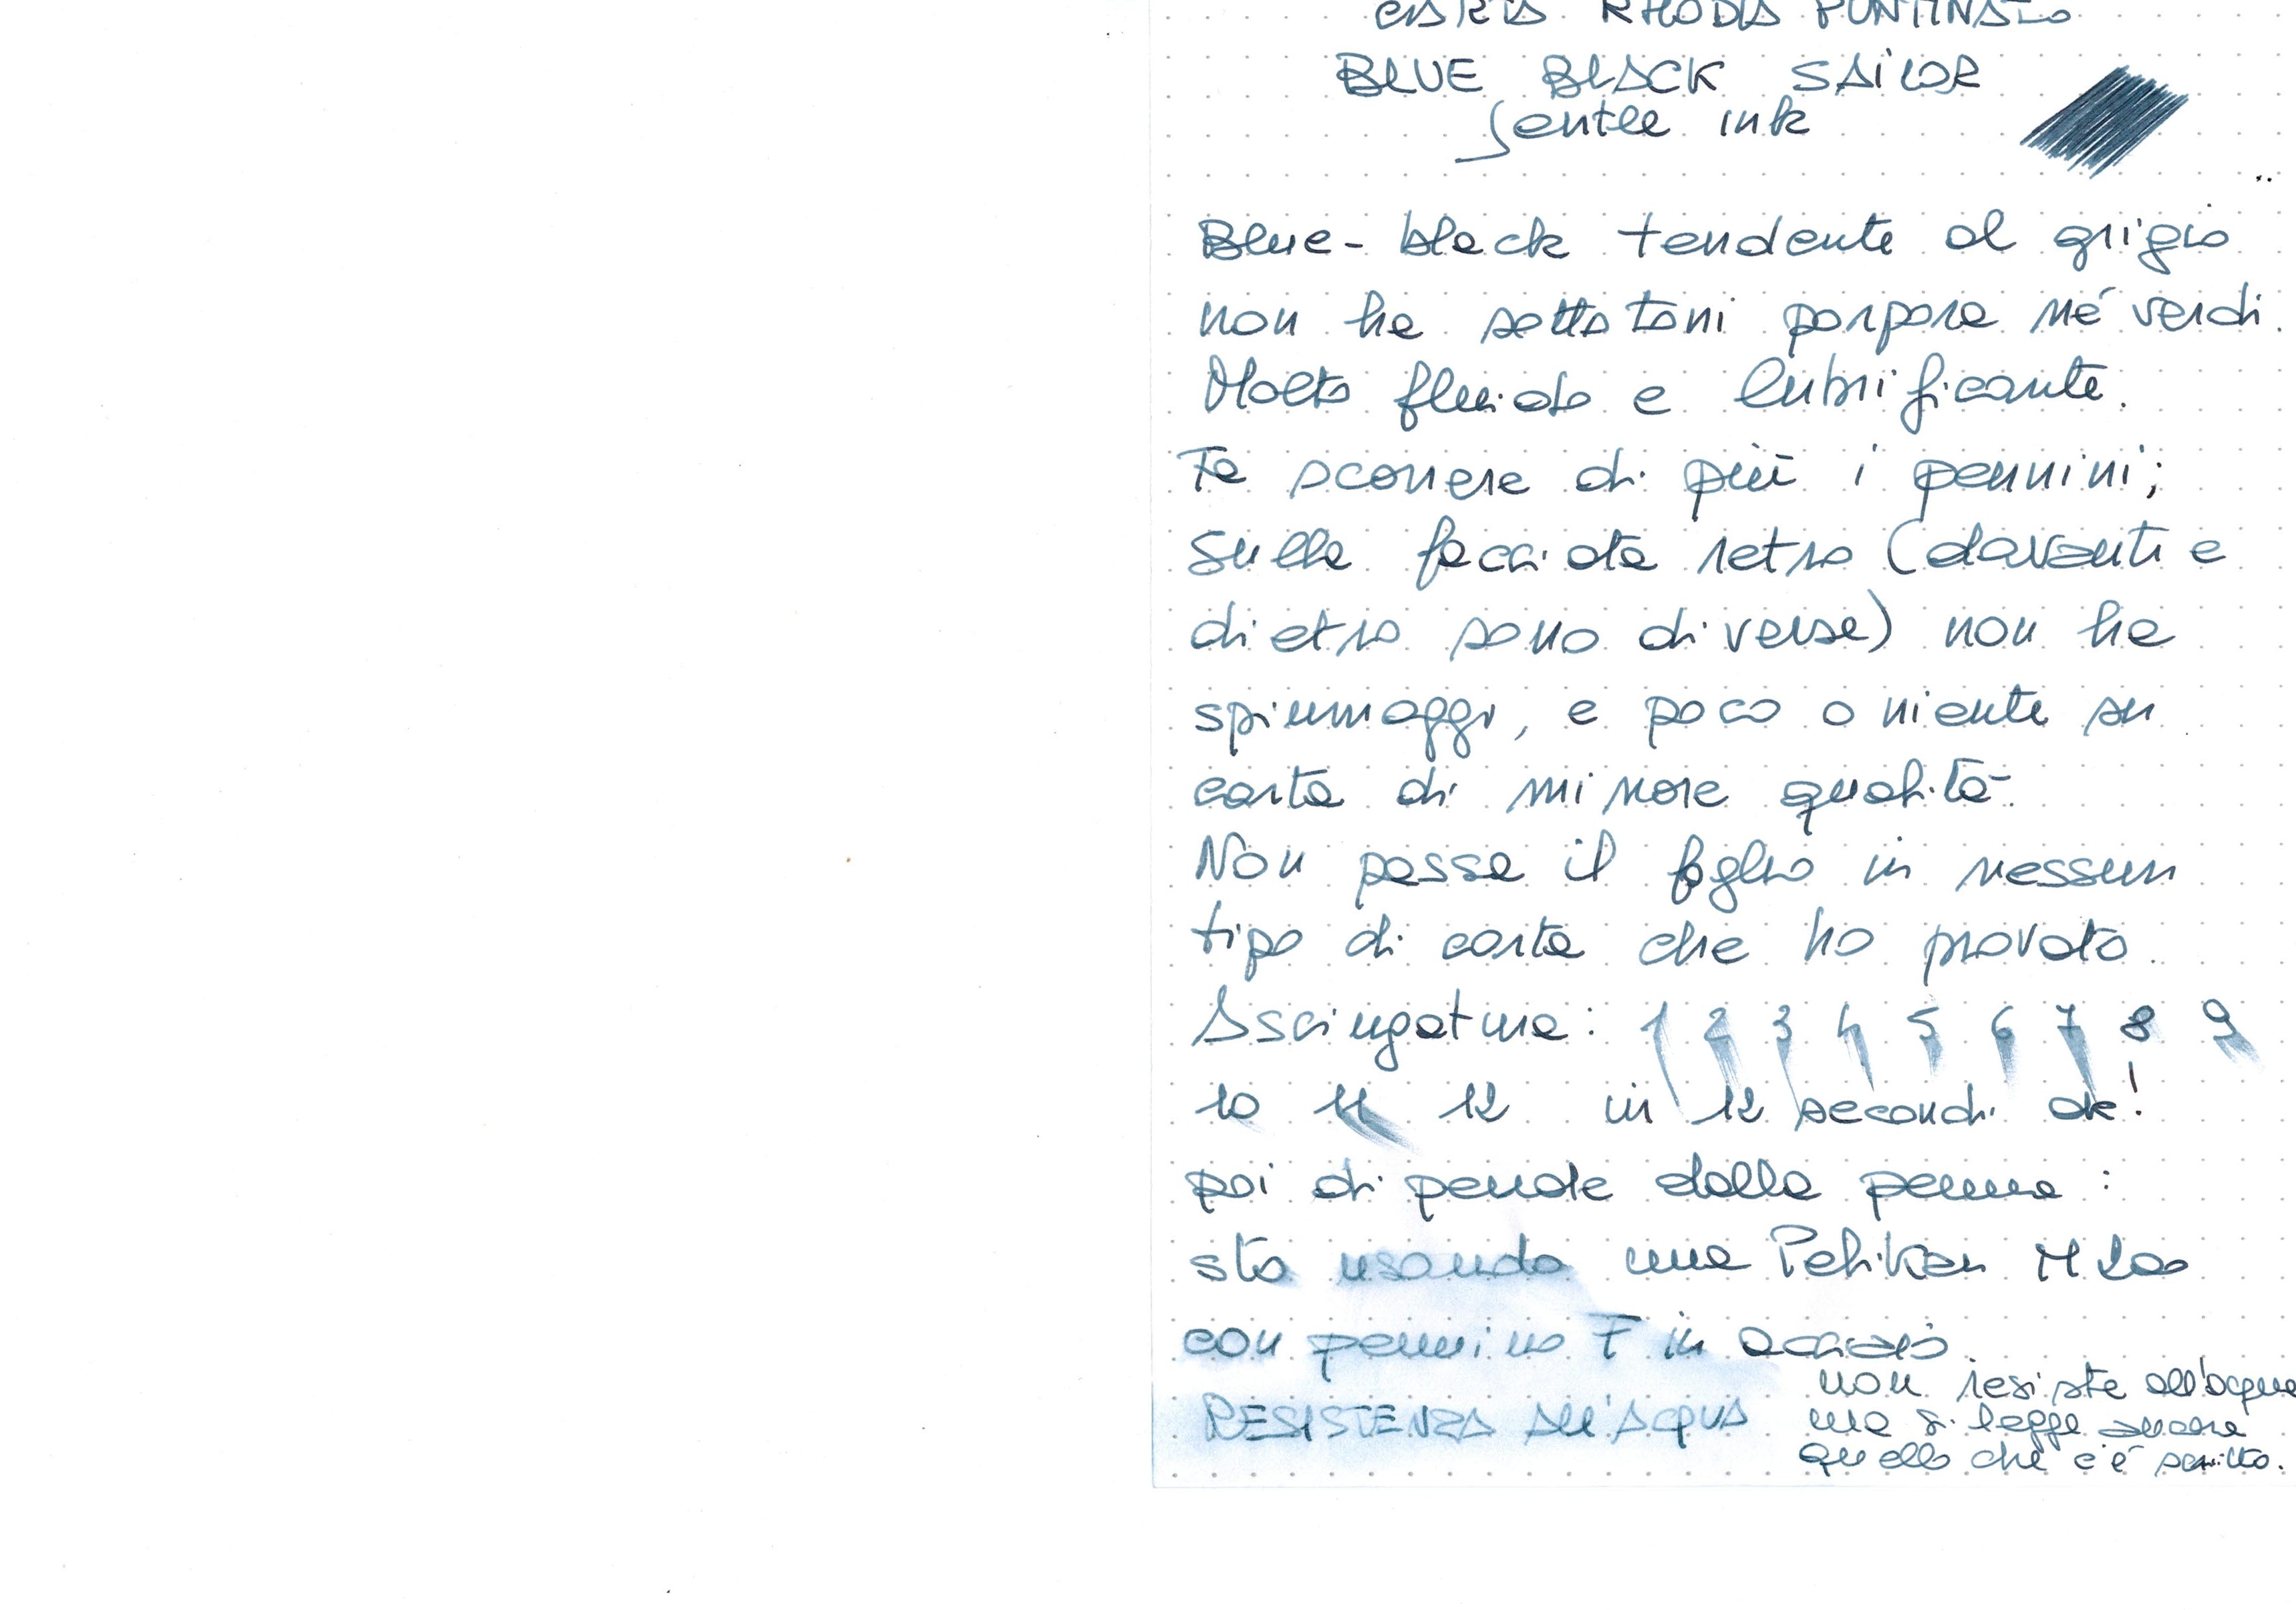 CARTA RHODIA PUNTINATO
BLUE BLACK SAILOR
Gentle ink
Blue-black tendente al grigio
non ha sottotoni porpora né verdi.
Molto fluido e lubrificante.
Fa scorrere di più i pennini;
Sulla facciata retro (davanti e
dietro sono diverse) non ha
spiumaggi, e poco o niente su
carta di minore qualità.
Non passa il foglio in nessun
tipo di carta che ho provato.
Asciugatura: 1 2 3 4 5 6 7 8 9
10 11 12 in 12 secondi ok!
poi dipende dalla penna:
sto usando una Pelikan M200
con pennino F in acciaio.
RESISTENZA ALL'ACQUA
non resiste all'acqua
ma si legge ancora
quello che c'è scritto.